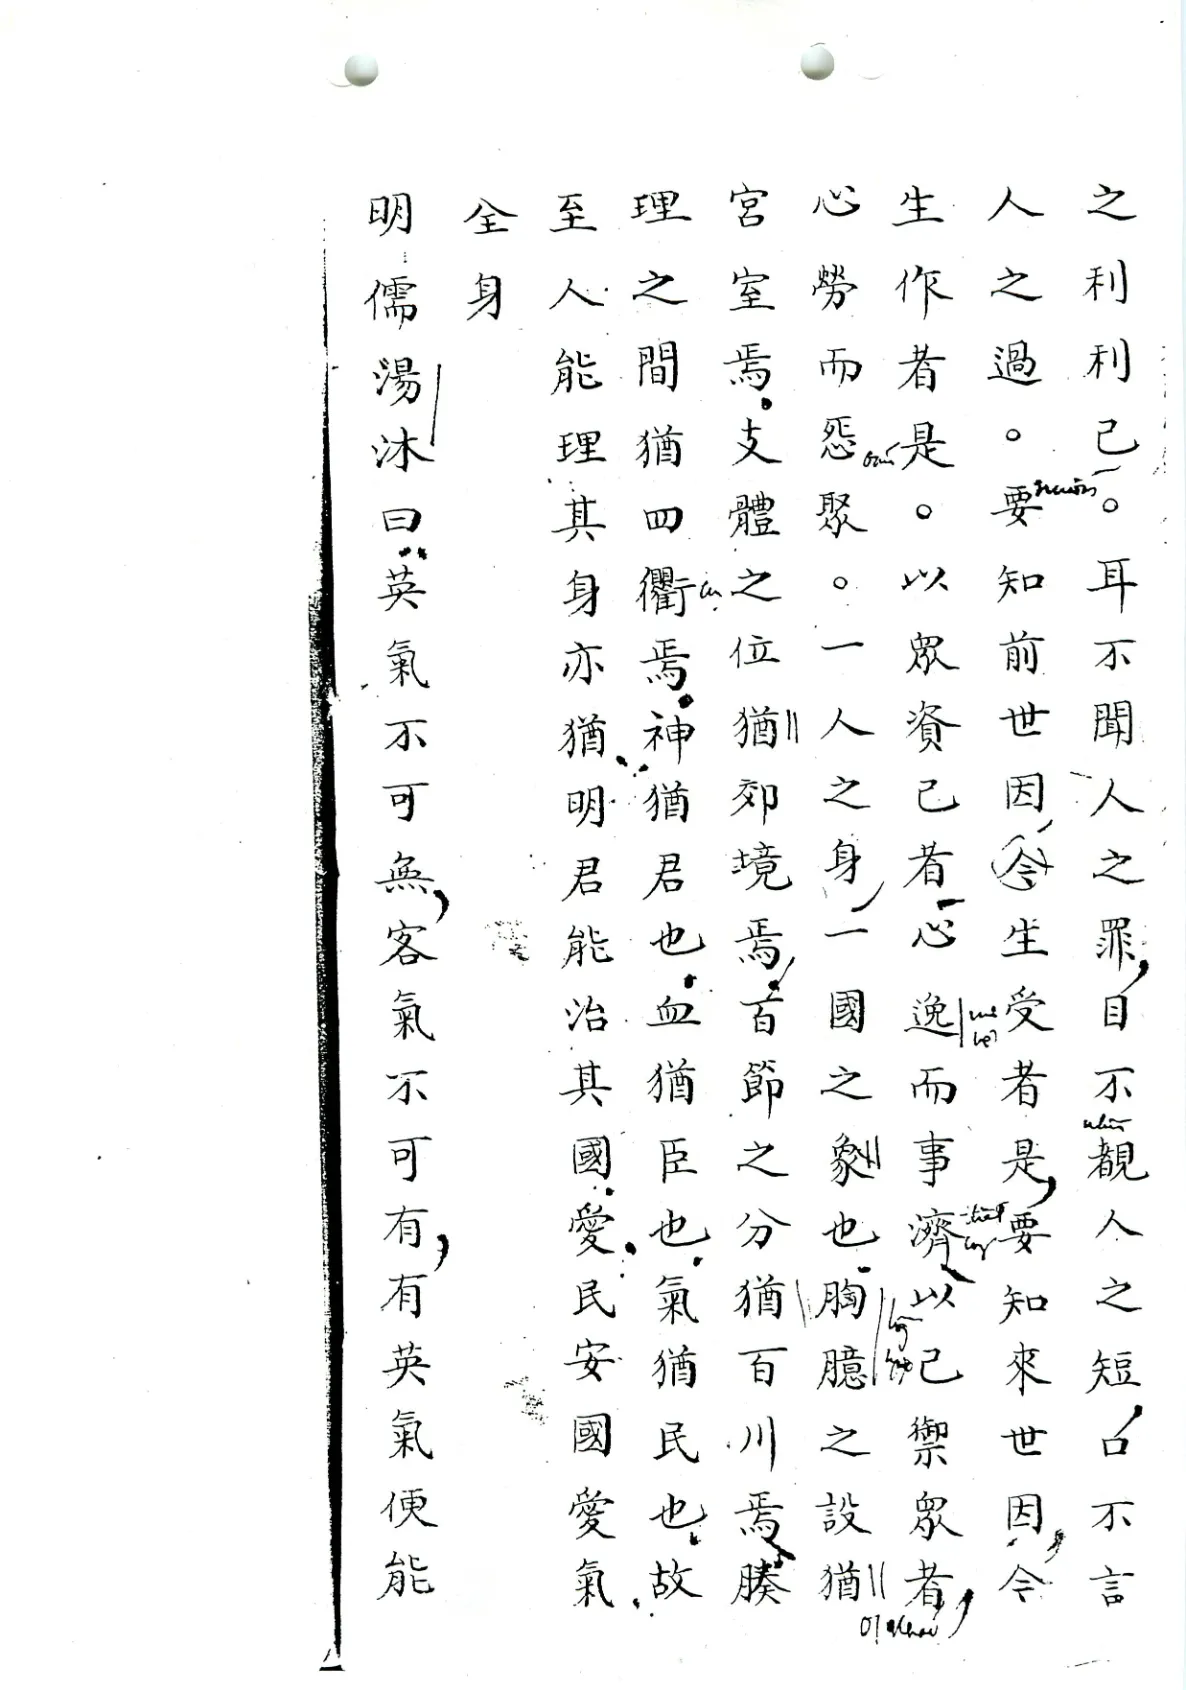 之利利己。耳不聞人之罪目不覩人之短口不言
人之過。要知前世因今生受者是要知來世因今
生作者是。以眾資己者心逸而事濟以己禦眾者
心勞而怨聚。一人之身一國之象也胸臆之設猶
宮室焉支體之位猶郊境焉百節之分猶百川焉腠
理之間猶四衢焉神猶君也血猶臣也氣猶民也故
至人能理其身亦猶明君能治其國愛民安國愛氣
全身
明儒湯沐曰英氣不可無客氣不可有有英氣便能